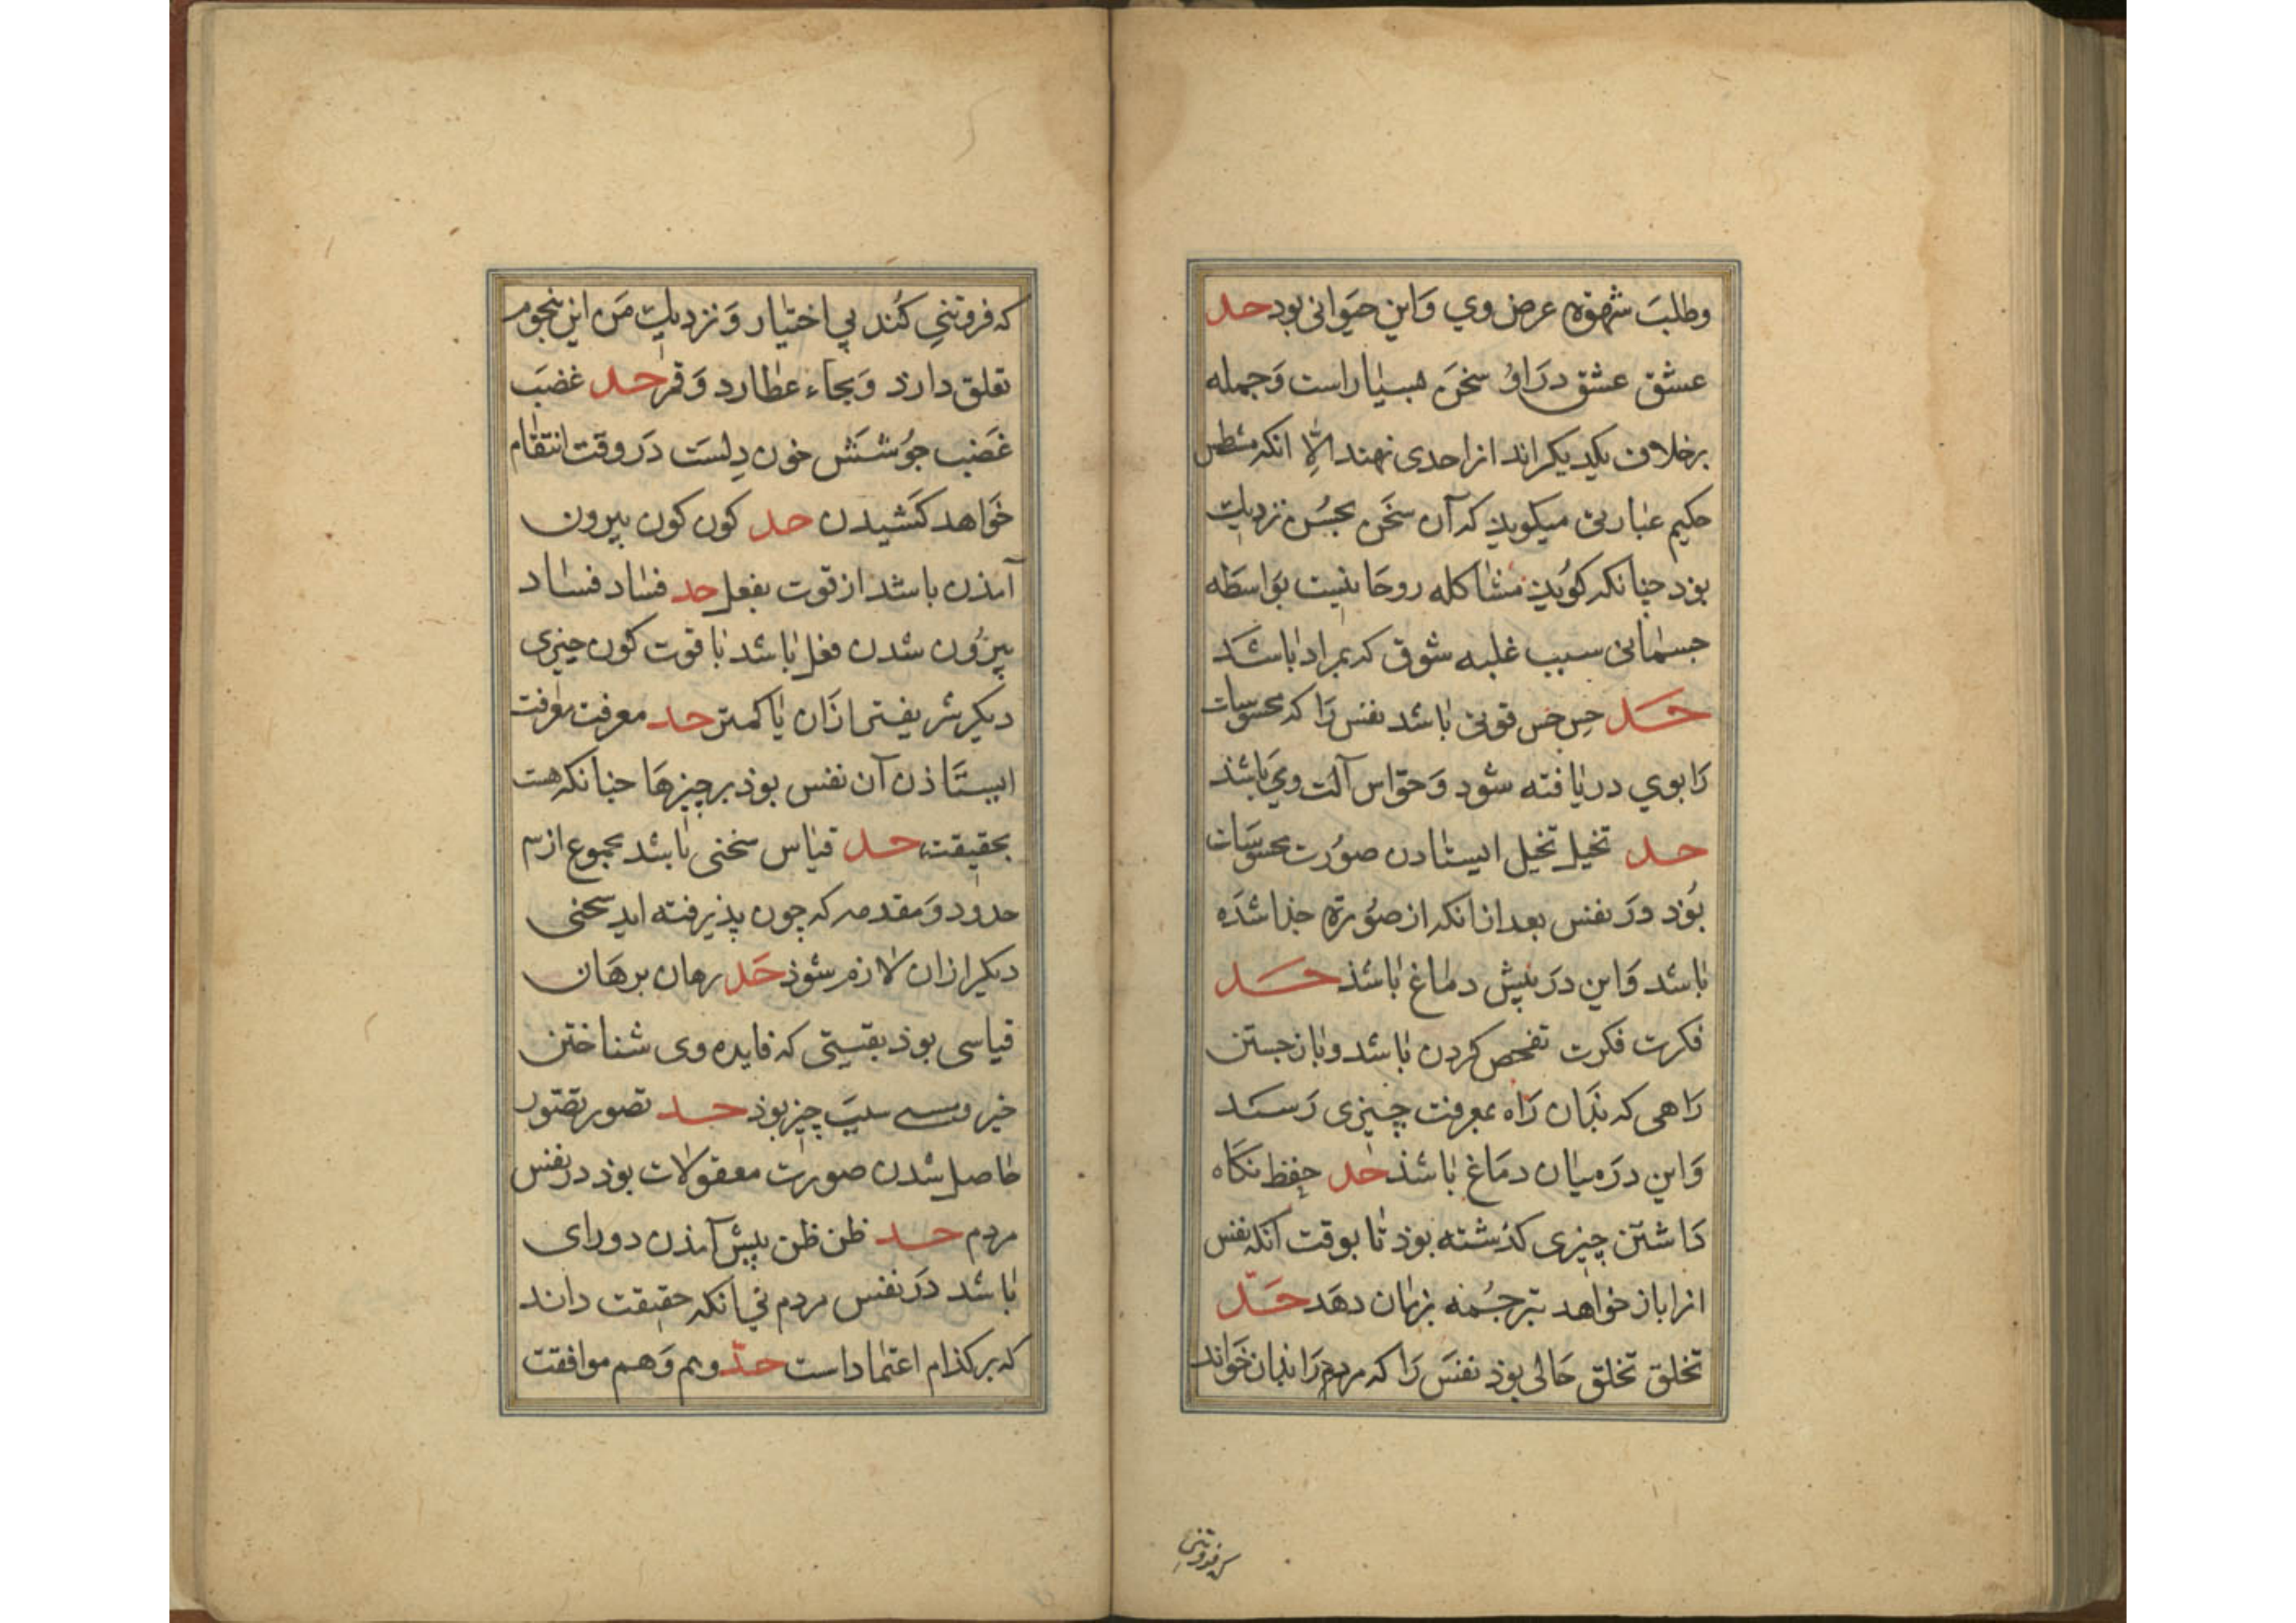 وطلبَ شهوة عرض وي وَاين حيَوانی بود حد
عشق عشق درَاوُ سخَن بسيٰار است وَجمله
برخلاف يكديكراند از احدی نهند اِلّا انكه
حكيم عبارتی ميكويذ كه آن سخَن بحُسن نزديك
بوذ چنانكه كوُيذ مشاكله روحَانيت بوَاسطَه
جسمٰانی سبب غلبه شوق كه بمراد بٰاشَد
حَد حِس حِس قوتی بٰاشد نفس رَا كه محسَوسات
رَا بوي دريٰافته شود وَحوّاس آلَت ويَ باشذ
حد تخيل تخيل ايستٰادن صوُرت محسوسَات
بوُذ درَ نفس بعد ازانكه از صوُرة جذا شدَه
بٰاشد وَاين درَ پيش دمٰاغ بٰاشذ حَد
فكرت فكرت تفحص كردن بٰاشد وبٰاز جستن
رَاهی كه بذَان رَاه بمعرفت چيزی رَسَد
وَاين درَ ميٰان دمَاغ بٰاشذ حَد حِفظ نكَاه
دَاشتَن چيزی كذشته بوذ تٰا بوقت آنكه نفس
انرا باز خواهد بترجُمه بزبٰان دهَد حَدّ
تخلق تخلق حَالی بوذ نفسَ رَا كه مردم رَا بذان خوَاند
كه فروتنی
كه فروتنیِ كُند بی اختيٰار وَنزديك مَن اين بنجوم
تعلق دارذ وَبجاء عطٰارد وَقمر حد غضَب
غَضَب جوُشَش خون دِلسَت درَ وقت انتقٰام
خوَاهد كشَيدن حد كون كون بيرون
آمذن باشد از قوت بفعل حد فسٰاد فسٰاد
بيرُون شدن فعل بٰاشد بٰا قوت كون چيزی
ديكر شريفتر ازَان يٰا كمتر حد معرفت معرفت
ايستَاذن آن نفس بوذ بر چيزهَا چنانكه هست
بحقيقت حد قيٰاس سخنی بٰاشد مجموع از
حدود وَمقدمه كه چون پذيرفته ايد سخنی
ديكر ازان لازم شوذ حَد برهان برهَان
قياسی بوذ يقينی كه فايده وی شناختن
چيز بوذ حد تصور تصَور
حٰاصل شدن صورت معقولات بوذ در نفس
مردم حد ظن ظن پيش آمذن دو رای
بٰاشد درَ نفس مردم بی آنكه حقيقت داند
كه بر كذام اعتمٰاد است حدّ وهم وَهم موافقت